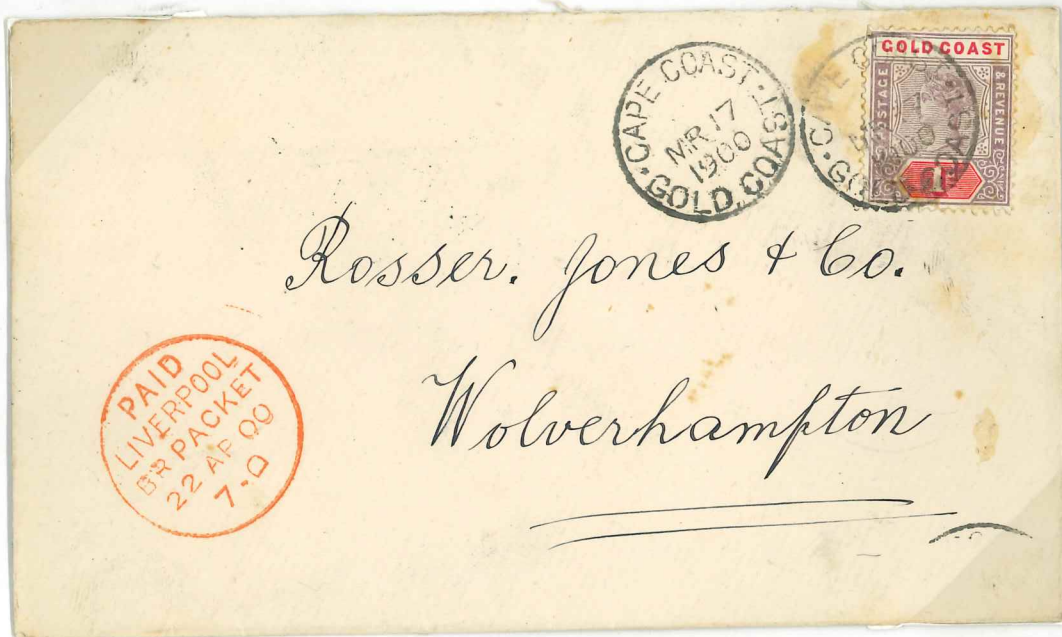 CAPE COAST.
MR 17
1900
GOLD COAST
GOLD COAST
POSTAGE
& REVENUE
1D
Rosser. Jones & Co.
Wolverhampton
PAID
LIVERPOOL
BR PACKET
22 AP 00
7-D